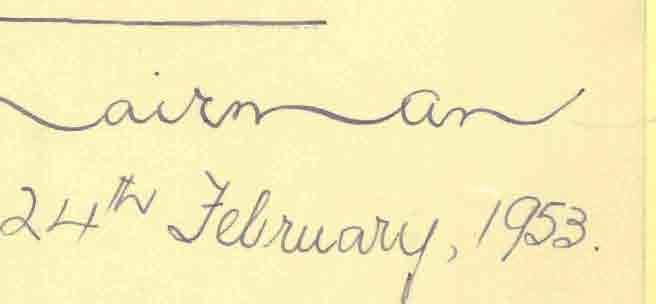 airman
24th February, 1953.